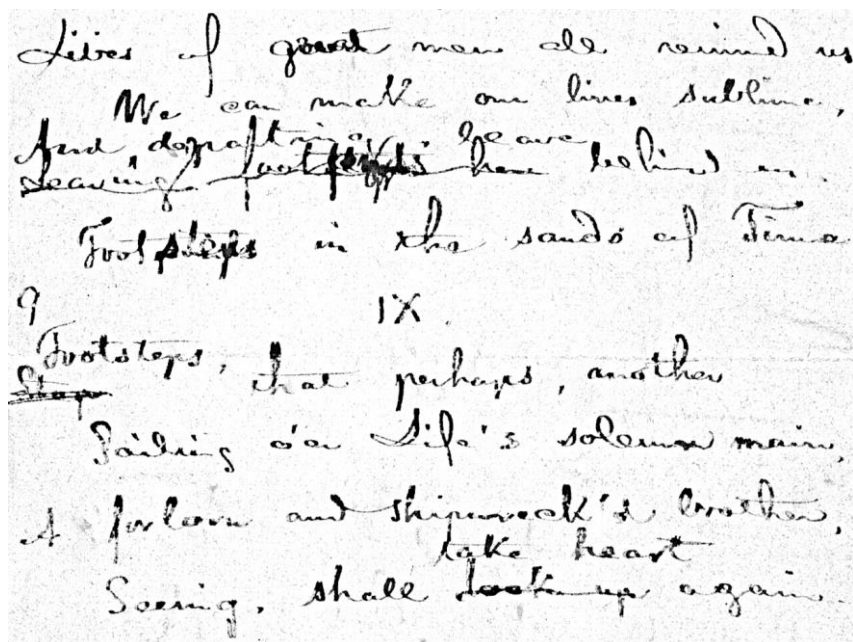 Lives of great men all remind us
We can make our lives sublime,
And departing, leave
Leaving footsteps here behind us
Footsteps in the sands of Time
9 IX.
Footsteps,
that perhaps, another
Sailing o'er Life's solemn main,
A forlorn and shipwreck'd brother,
take heart
Seeing, shall look up again